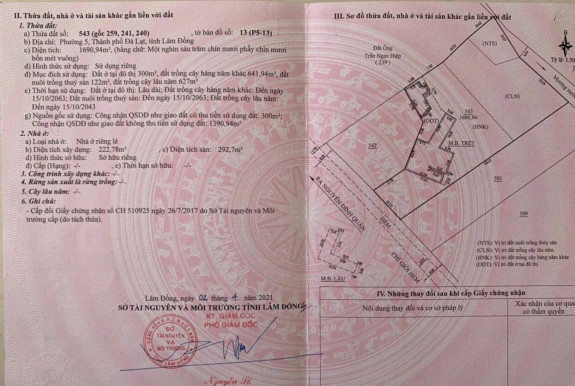 II. Thửa đất, nhà ở và tài sản khác gắn liền với đất
1. Thửa đất:
a) Thửa đất số: 543 (gốc 259, 241, 240), tờ bản đồ số: 13 (P5-13)
b) Địa chỉ: Phường 5, Thành phố Đà Lạt, tỉnh Lâm Đồng
c) Diện tích: 1690,94m², (bằng chữ: Một nghìn sáu trăm chín mươi phẩy chín mươi
bốn mét vuông)
d) Hình thức sử dụng: Sử dụng riêng
đ) Mục đích sử dụng: Đất ở tại đô thị 300m², đất trồng cây hàng năm khác 641,94m², đất
nuôi trồng thuỷ sản 122m², đất trồng cây lâu năm 627m²
e) Thời hạn sử dụng: Đất ở tại đô thị: Lâu dài; Đất trồng cây hàng năm khác: Đến ngày
15/10/2063; Đất nuôi trồng thuỷ sản: Đến ngày 15/10/2063; Đất trồng cây lâu năm:
Đến ngày 15/10/2043
g) Nguồn gốc sử dụng: Công nhận QSDĐ như giao đất có thu tiền sử dụng đất: 300m²;
Công nhận QSDĐ như giao đất không thu tiền sử dụng đất: 1390,94m²
2. Nhà ở:
a) Loại nhà ở: Nhà ở riêng lẻ
b) Diện tích xây dựng: 222,78m², c) Diện tích sàn: 292,7m²
d) Hình thức sở hữu: Sở hữu riêng
đ) Cấp (Hạng): -/-, e) Thời hạn sở hữu: -/-
3. Công trình xây dựng khác: -/-
4. Rừng sản xuất là rừng trồng: -/-
5. Cây lâu năm: -/-
6. Ghi chú:
- Cấp đổi Giấy chứng nhận số CH 510925 ngày 26/7/2017 do Sở Tài nguyên và Môi
trường cấp (do tách thửa).
Lâm Đồng, ngày 02 tháng 4 năm 2021
SỞ TÀI NGUYÊN VÀ MÔI TRƯỜNG TỈNH LÂM ĐỒNG
KT. GIÁM ĐỐC
PHÓ GIÁM ĐỐC
SỞ
TÀI NGUYÊN
VÀ
MÔI TRƯỜNG
III. Sơ đồ thửa đất, nhà ở và tài sản khác gắn liền với đất
Đất Ông
Trần Ngọc Hiệp
( 239 )
(NTS)
(CLN)
543
1690.94
(HNK)
(ODT)
M.B. TRỆT
582
581
500
RA NGUYỄN ĐÌNH QUÂN
HẺM
CHỈ GIỚI HẺM
M.B. LẦU
(NTS): Vị trí đất nuôi trồng thủy sản
(CLN): Vị trí đất trồng cây lâu năm
(HNK): Vị trí đất trồng cây hàng năm khác
(ODT): Vị trí đất ở tại đô thị
IV. Những thay đổi sau khi cấp Giấy chứng nhận
Nội dung thay đổi và cơ sở pháp lý
Xác nhận của cơ quan
có thẩm quyền